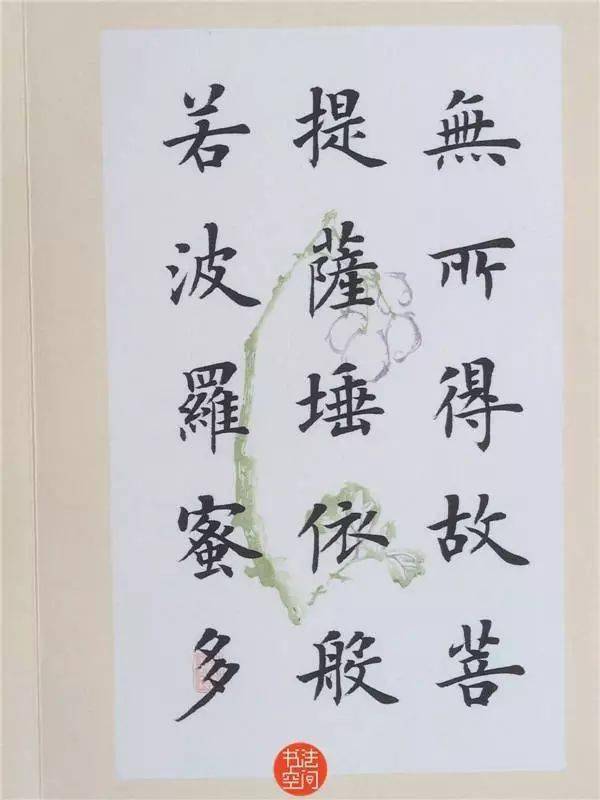 無所得故菩
提薩埵依般
若波羅蜜多
书法
空间